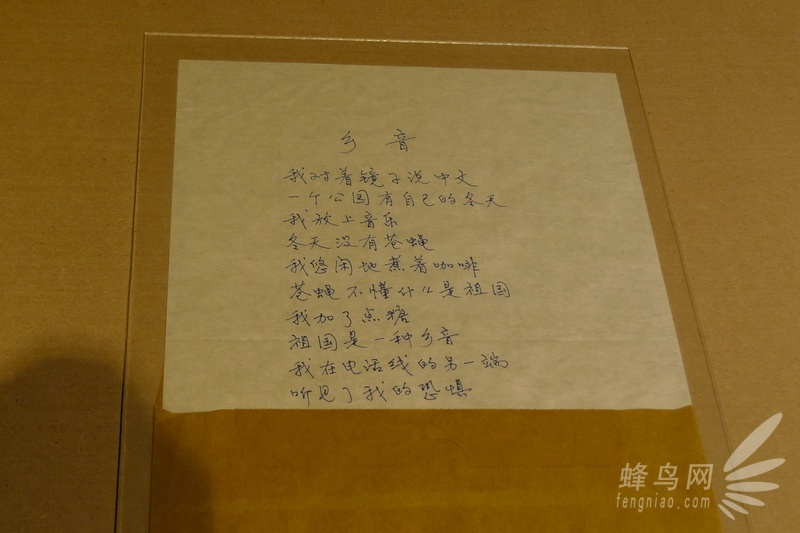 乡音
我对着镜子说中文
一个公园有自己的冬天
我放上音乐
冬天没有苍蝇
我悠闲地煮着咖啡
苍蝇不懂什么是祖国
我加了点糖
祖国是一种乡音
我在电话线的另一端
听见了我的恐惧
蜂鸟网
fengniao.com